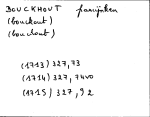 BOUCKHOUT
(bouckout)
(bouchout)
(1713) 327, 73
(1714) 327, 74vo
(1715) 327, 92